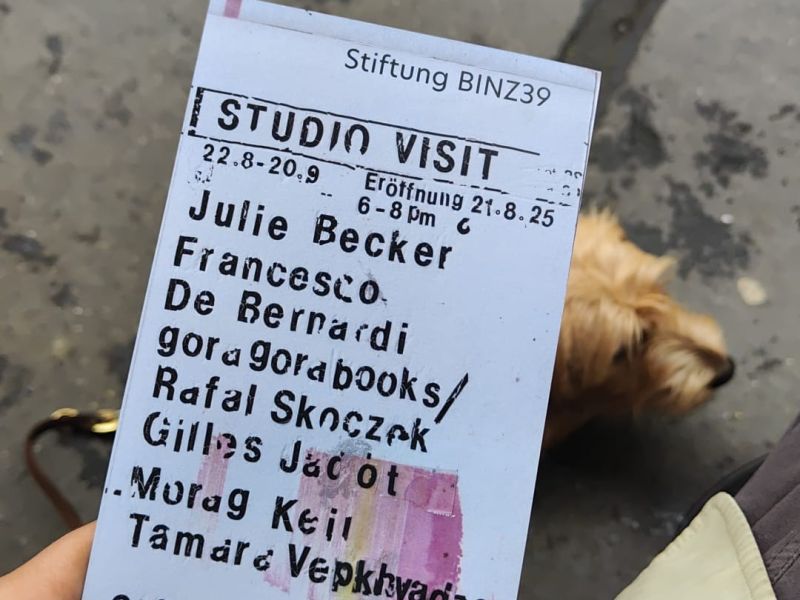 Stiftung BINZ39
STUDIO VISIT
22.8-20.9 Eröffnung 21.8.25
6-8pm
Julie Becker
Francesco
De Bernardi
goragorabooks/
Rafal Skoczek
Gilles Jacot
Morag Keil
Tamara